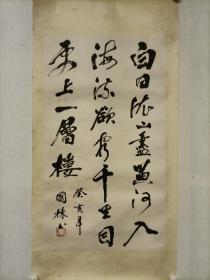 白日依山盡黄河入
海流欲窮千里目
更上一層樓
癸亥年
國樑书